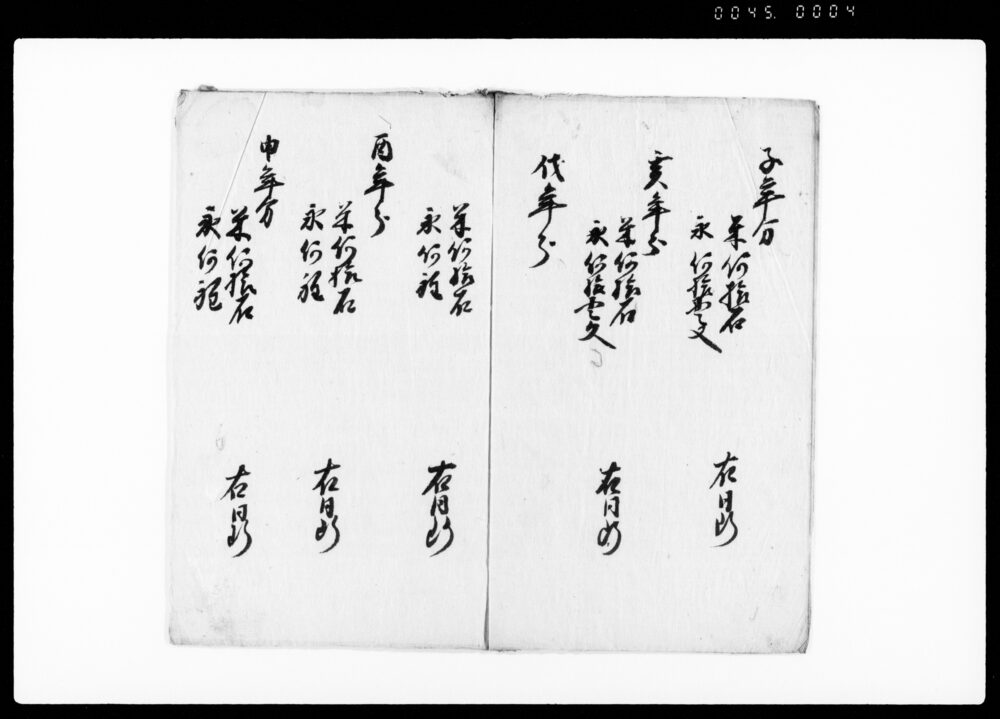 0045. 0004
子年分
米何拾石
永何拾貫文
右同断
亥年分
米何拾石
永何拾貫文
右同断
戌年分
米何拾石
永何程
右同断
酉年分
米何拾石
永何程
右同断
申年分
米何拾石
永何程
右同断